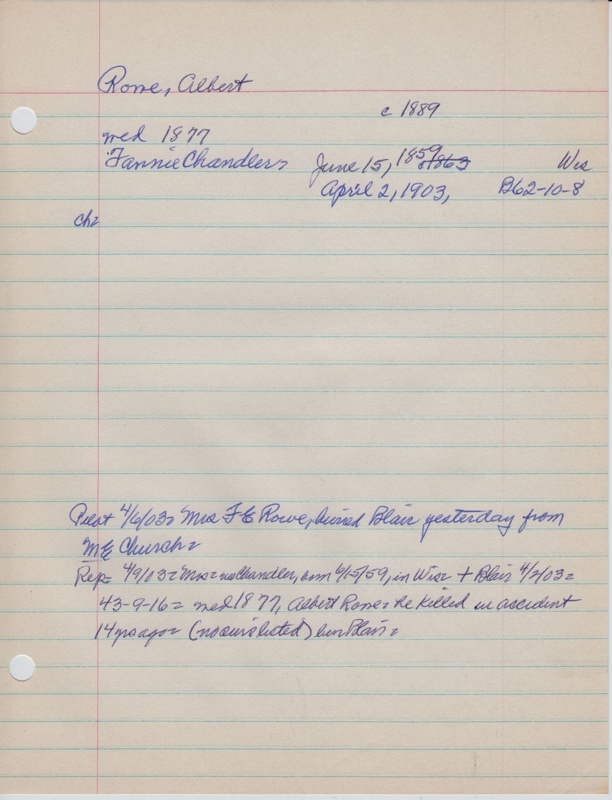 Rowe, Albert
c 1889
med 1877
Fannie Chandler= June 15, 1859 1863 Wis
April 2, 1903, B62-10-8
ch=
Pilot 4/6/03= Mrs F E Rowe, buried Blair yesterday from
ME Church=
Rep= 4/9/03= Mrs= nee Chandler, born 6/15/59, in Wis= + Blair 4/2/03=
43-9-16= med 1877, Albert Rowe= he killed in accident
14 yrs ago= (no survs listed) bur Blair=